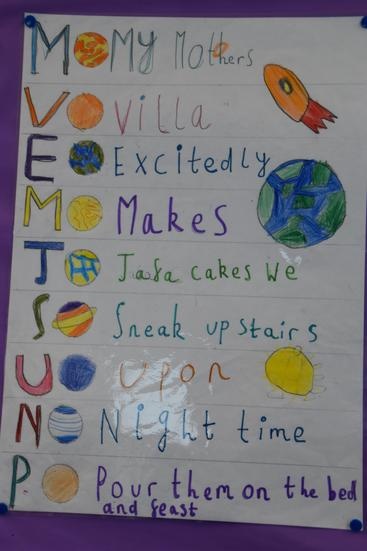 M My Mothers
V Villa
E Excitedly
M Makes
J Jafa cakes we
S Sneak upstairs
U upon
N Night time
P Pour them on the bed
and feast